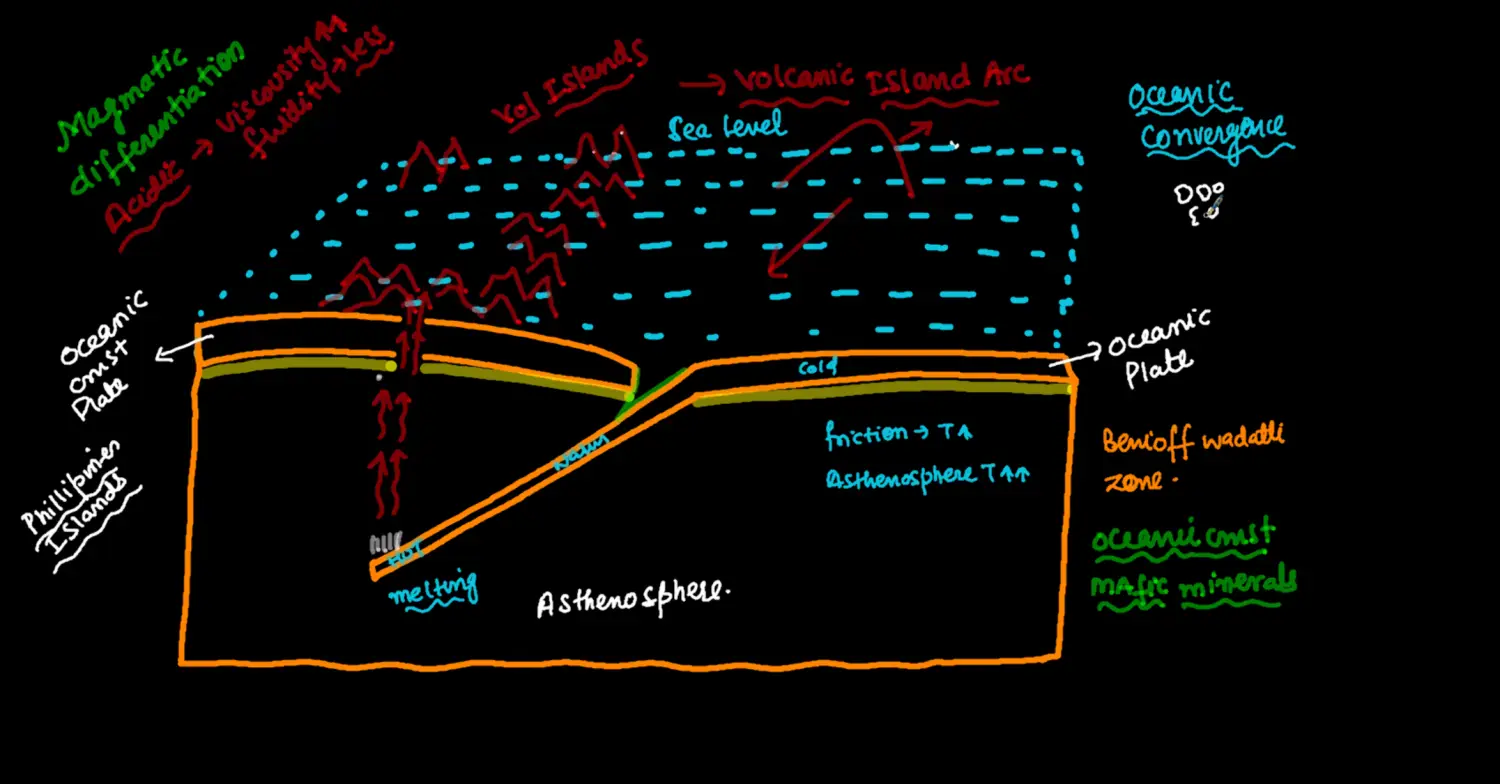 Magmatic
differentiation
Acidic → viscousity ↑↑
fluidity → less
Vol Islands → Volcanic Island Arc
Sea Level
Oceanic
Convergence
Oceanic
crust
Plate
Phillipines
Islands
Cold
Oceanic
Plate
friction → T ↑
Asthenosphere T ↑↑
Warm
HOT
melting
Asthenosphere.
Benioff wadatti
zone.
Oceanic crust
MAfic minerals